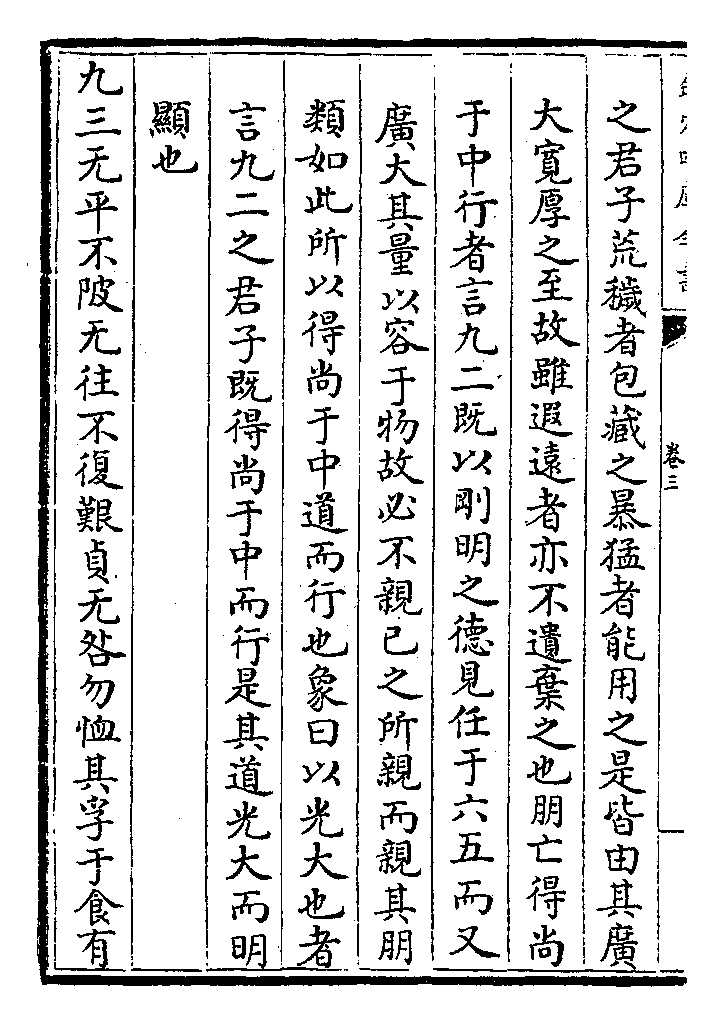 卷三
之君子荒穢者包藏之暴猛者能用之是皆由其廣
大寛厚之至故雖遐遠者亦不遺棄之也朋亡得尚
于中行者言九二既以剛明之德見任于六五而又
廣大其量以容于物故必不親已之所親而親其朋
類如此所以得尚于中道而行也象曰以光大也者
言九二之君子既得尚于中而行是其道光大而明
顯也
九三无平不陂无往不復艱貞无咎勿恤其孚于食有